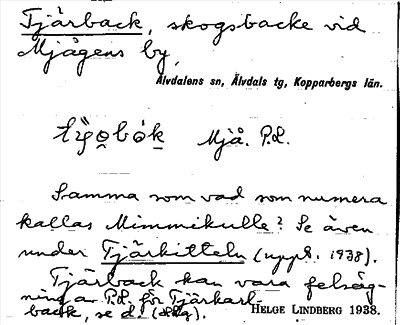 Tjärback, skogsbacke vid
Mjågens by,
Älvdalens sn, Älvdals tg, Kopparbergs län.
Mjå. P.L.
Samma som vad som numera
kallas Mimmikulle? Se även
under Tjärkitteln (uppt. 1938).
Tjärback kan vara felsäg-
ning av P.L. för Tjärkarl-
back, se d.
HELGE LINDBERG 1938.